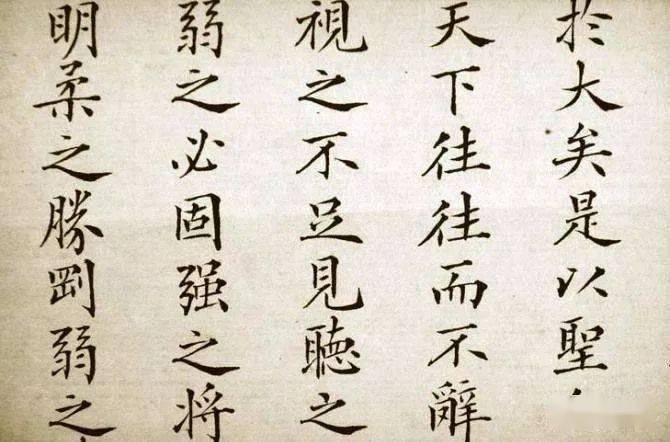 扵大矣是以聖
天下往往而不辭
視之不足見聽之
弱之必固强之将
明柔之勝剛弱之